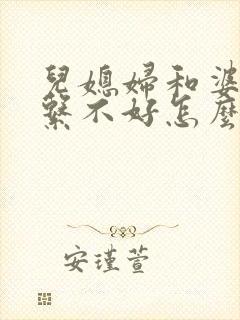 兒媳婦和婆
繫不好怎麼
安瑾萱